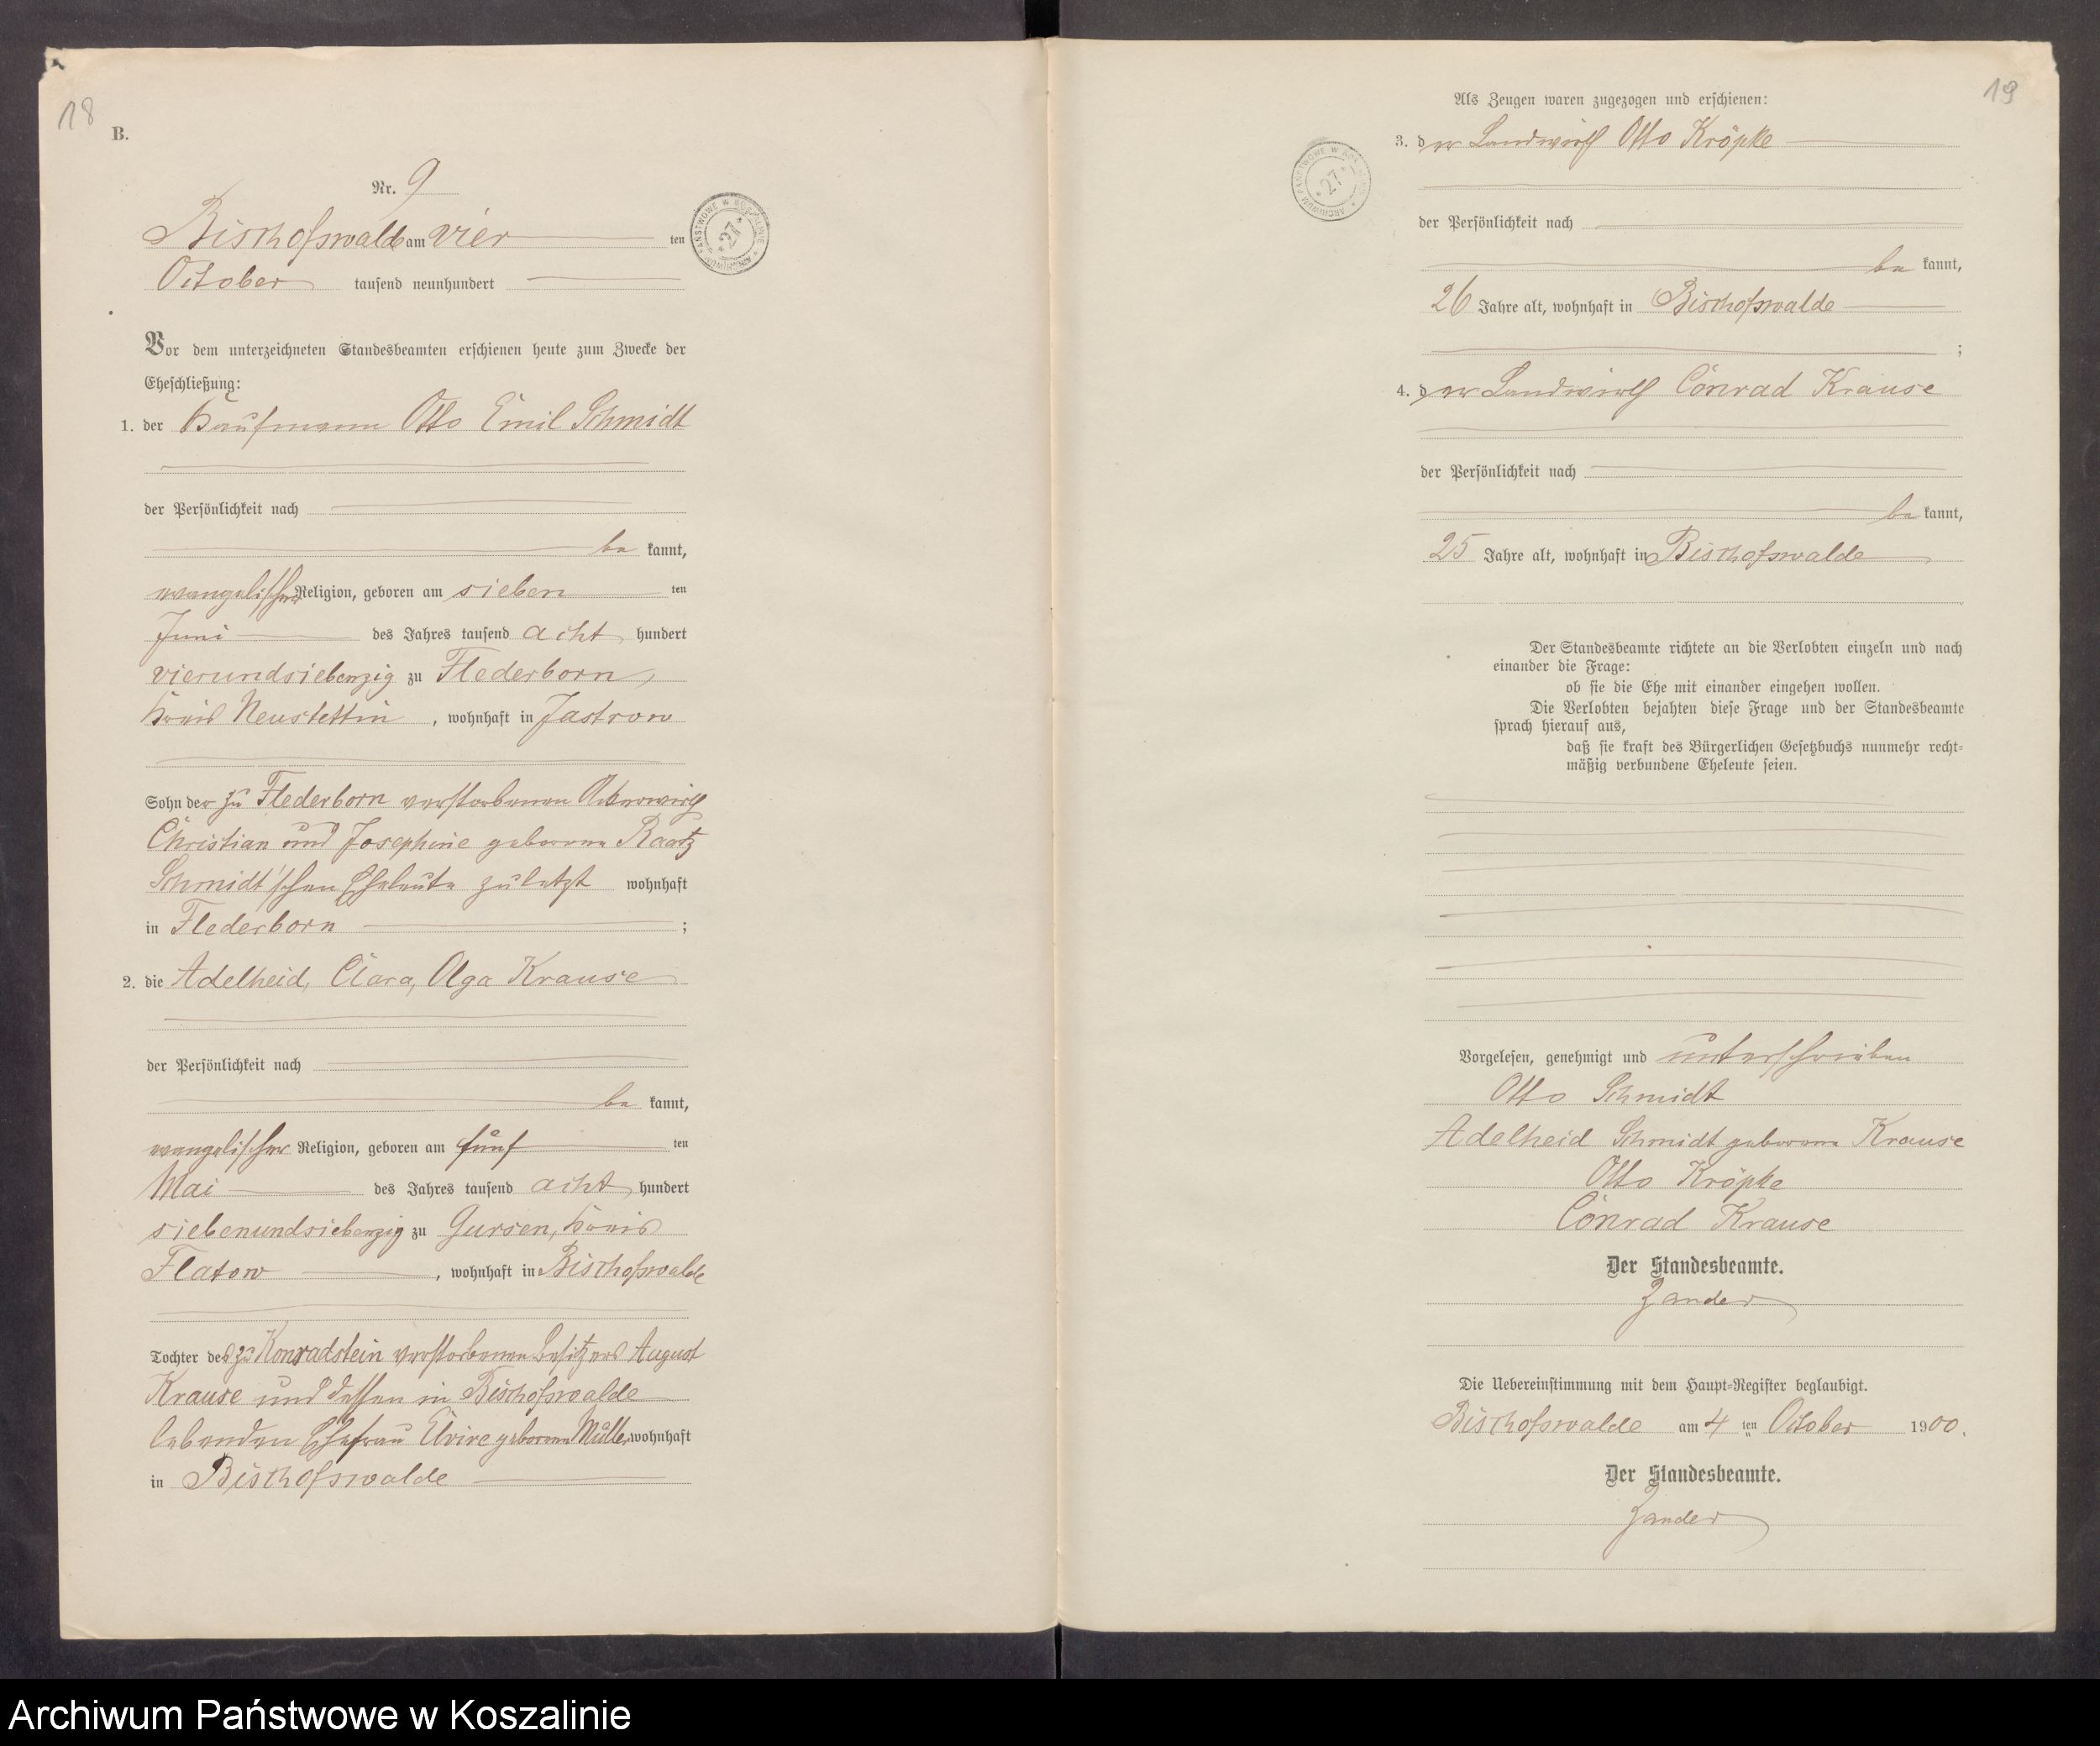 18
B.
Nr. 9
Bischofswalde am vier ten
October tausend neunhundert
Vor dem unterzeichneten Standesbeamten erschienen heute zum Zwecke der
Eheschließung:
1. der Kaufmann Otto Emil Schmidt
der Persönlichkeit nach
be kannt,
evangelischer Religion, geboren am sieben ten
Juni des Jahres tausend acht hundert
vierundsiebenzig zu Flederborn,
Kreis Neustettin, wohnhaft in Jastrow
Sohn der zu Flederborn verstorbenen Ackerwirth
Christian und Josephine geborene Raatz
Schmidt'schen Eheleute zuletzt wohnhaft
in Flederborn ;
2. die Adelheid, Clara, Olga Krause
der Persönlichkeit nach
be kannt,
evangelischer Religion, geboren am fünf ten
Mai des Jahres tausend acht hundert
siebenundsiebenzig zu Gursen, Kreis
Flatow, wohnhaft in Bischofswalde
Tochter des zu Konradstein verstorbenen Besitzers August
Krause und dessen in Bischofswalde
lebenden Ehefrau Elvire geborene Müller wohnhaft
in Bischofswalde
ARCHIWUM PAŃSTWOWE W KOSZALINIE
* 27 *
19
Als Zeugen waren zugezogen und erschienen:
3. der Landwirth Otto Kröpke
der Persönlichkeit nach
be kannt,
26 Jahre alt, wohnhaft in Bischofswalde
;
4. der Landwirth Conrad Krause
der Persönlichkeit nach
be kannt,
25 Jahre alt, wohnhaft in Bischofswalde
Der Standesbeamte richtete an die Verlobten einzeln und nach
einander die Frage:
ob sie die Ehe mit einander eingehen wollen.
Die Verlobten bejahten diese Frage und der Standesbeamte
sprach hierauf aus,
daß sie kraft des Bürgerlichen Gesetzbuchs nunmehr recht-
mäßig verbundene Eheleute seien.
Vorgelesen, genehmigt und unterschrieben
Otto Schmidt
Adelheid Schmidt geborene Krause
Otto Kröpke
Conrad Krause
Der Standesbeamte.
Zander
Die Uebereinstimmung mit dem Haupt-Register beglaubigt.
Bischofswalde am 4 ten October 1900.
Der Standesbeamte.
Zander
ARCHIWUM PAŃSTWOWE W KOSZALINIE
* 27 *
Archiwum Państwowe w Koszalinie